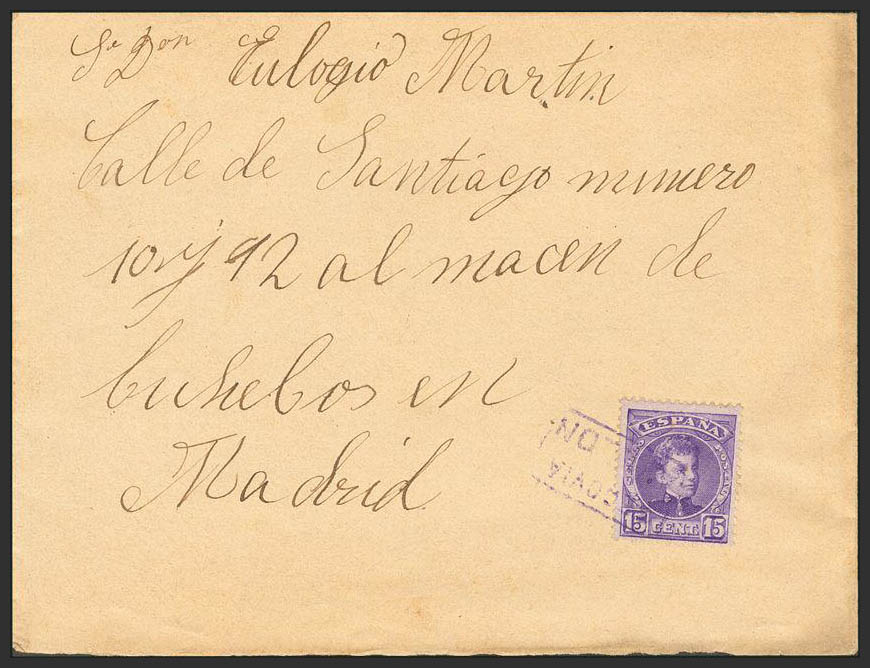 Sr Don Eulogio Martin
Calle de Santiago numero
10 y 92 al macen de
en
Madrid
ESPAÑA
15 CENT. 15
OVIA